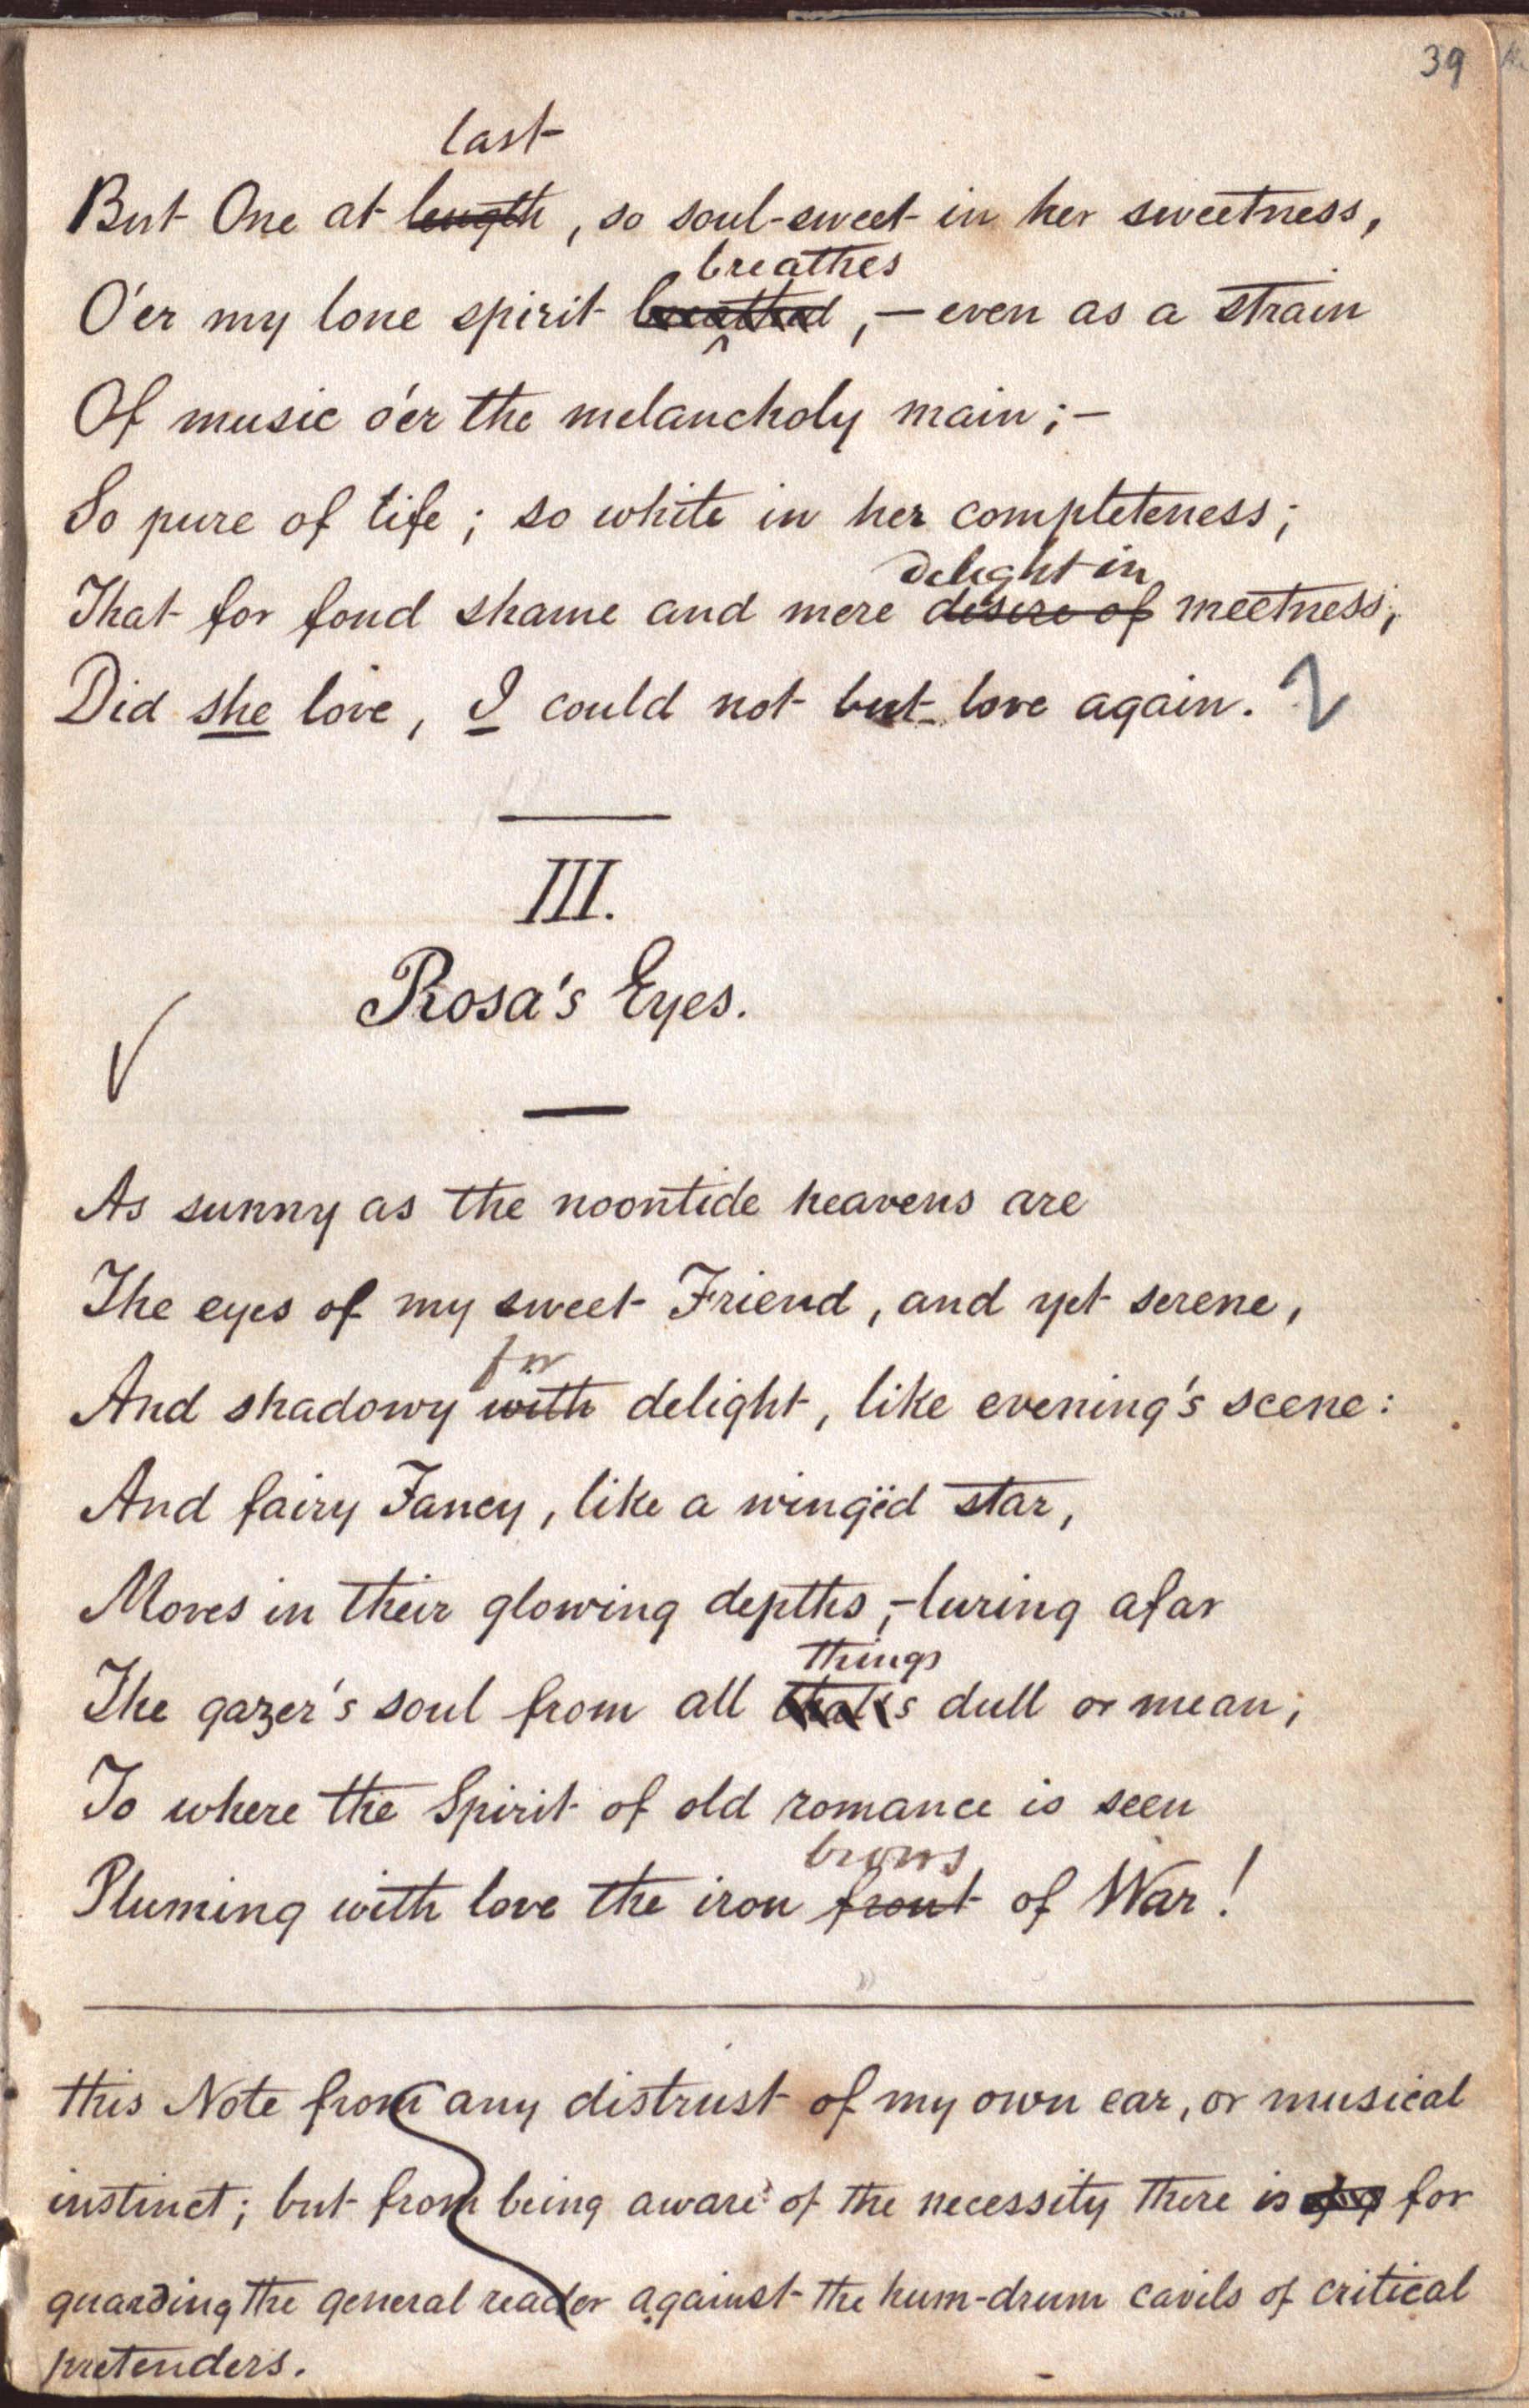 39
last
But One at length, so soul-sweet in her sweetness,
breathes
O'er my lone spirit breathed ,— even as a strain
Of music o'er the melancholy main ;—
So pure of life ; so white in her completeness ;
delight in
That for fond shame and mere desire of meetness,
Did she love, I could not but love again.
III.
Rosa's Eyes.
As sunny as the noontide heavens are
The eyes of my sweet Friend, and yet serene,
for
And shadowy with delight, like evening's scene :
And fairy Fancy, like a wingëd star,
Moves in their glowing depths,—luring afar
things
The gazer's soul from all that's dull or mean ;
To where the Spirit of old romance is seen
brows
Pluming with love the iron front of War !
this Note from any distrust of my own ear, or musical
instinct ; but from being aware of the necessity there is for
guarding the general reader against the hum-drum cavils of critical
pretenders.